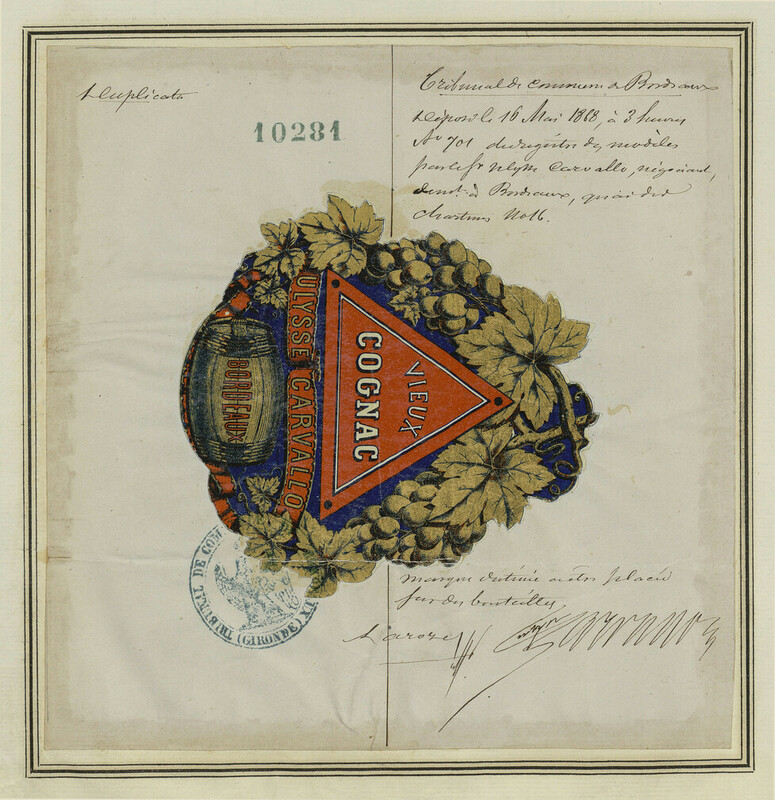 Duplicata
10281
Tribunal de Commerce de Bordeaux
Déposé le 16 Mai 1868, à 3 heures
No 701 du registre des modèles
par le Sr Ulysse Carvallo, négociant,
demt. à Bordeaux, quai des
Chartrons No 16.
VIEUX
COGNAC
ULYSSE CARVALLO
BORDEAUX
TRIBUNAL DE COM
(GIRONDE)
marque destinée à être placée
sur des bouteilles
Laroze